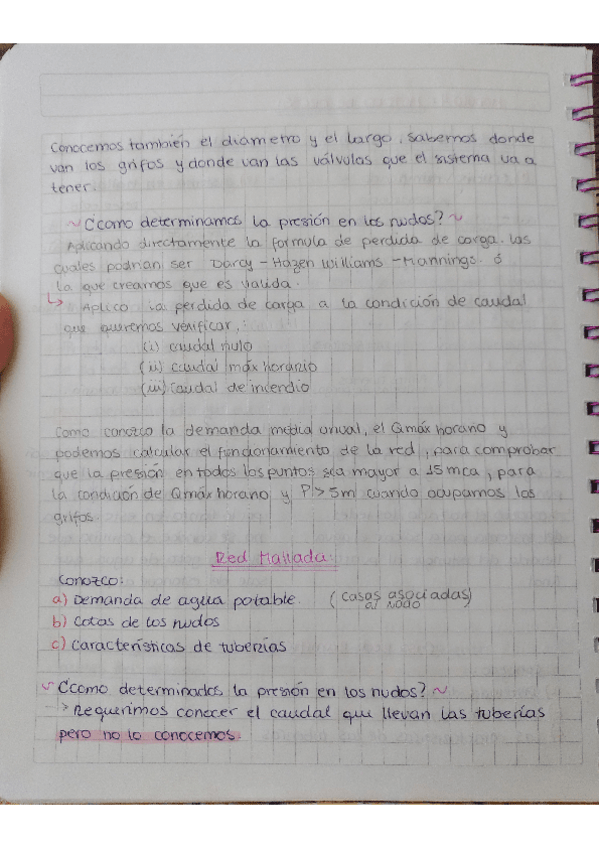 Conocemos también el diametro y el largo, sabemos donde
van los grifos y donde van las válvulas que el sistema va a
tener.
~ ¿Como determinamos la presión en los nudos? ~
Aplicando directamente la formula de perdida de carga. las
cuales podrian ser Darcy - Hazen Williams - Mannings. ó
la que creamos que es valida.
↳ Aplico la perdida de carga a la condición de caudal
que queremos verificar,:
(i) caudal nulo
(ii) caudal máx horario
(iii) caudal de incendio
Como conozco la demanda media anual, el Qmáx horario y
podemos calcular el funcionamiento de la red, para comprobar
que la presión en todos los puntos sea mayor a 15 mca, para
la condición de Qmáx horario y P > 5m cuando ocupamos los
grifos
Red Mallada:
Conozco:
a) Demanda de agua potable. (casas asociadas)
al NODO
b) Cotas de los nudos
c) Características de tuberías
~ ¿Como determinados la presión en los nudos? ~
> Requerimos conocer el caudal que llevan las tuberías
pero no lo conocemos